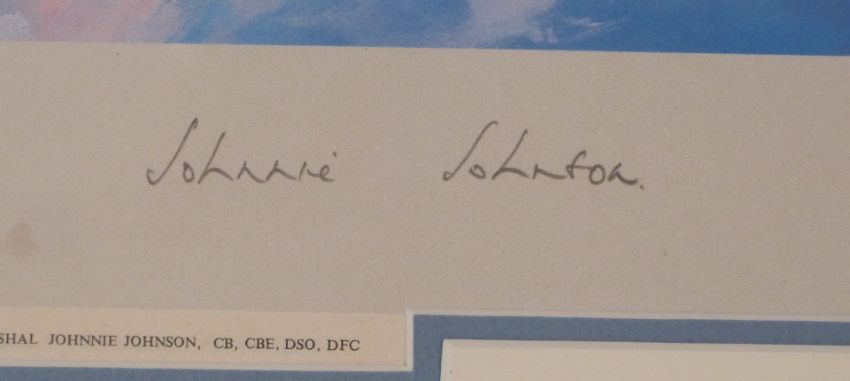 Johnnie Johnson.
SHAL JOHNNIE JOHNSON, CB, CBE, DSO, DFC